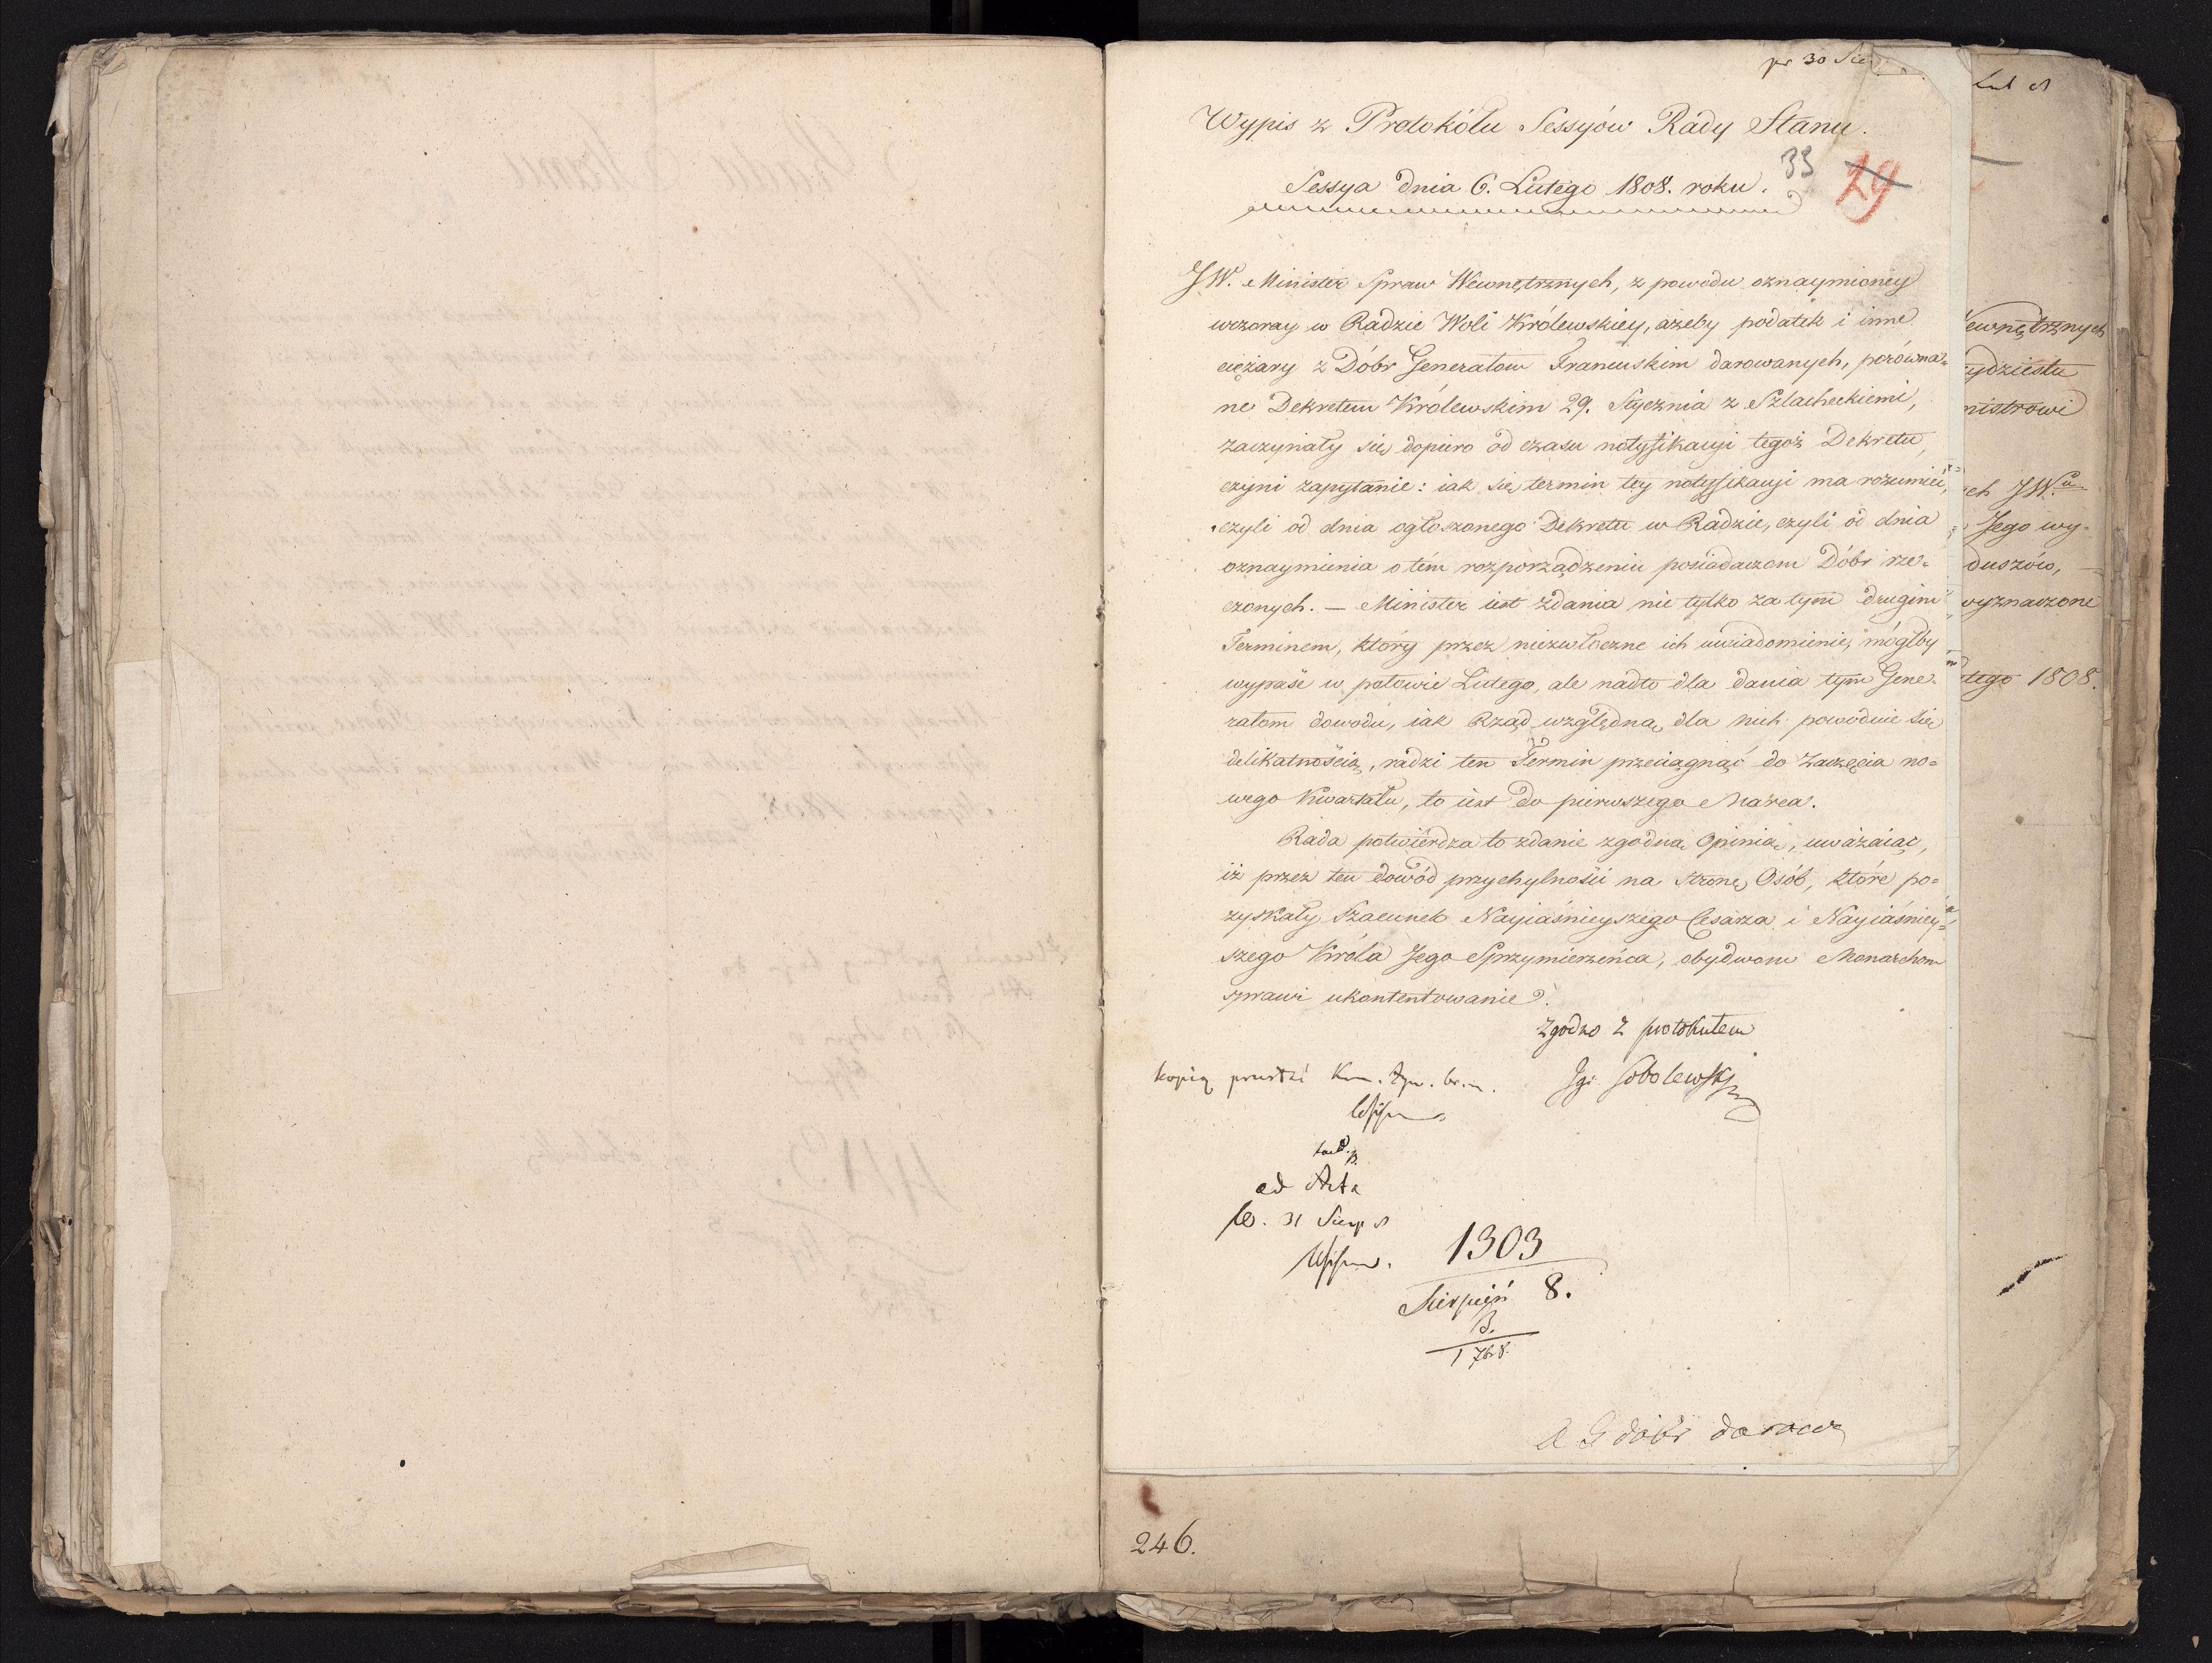 pr 30 Sie
Wypis z Protokółu Sessyów Rady Stanu.
33 29
Sessya dnia 6. Lutego 1808. roku.
JW. Minister Spraw Wewnętrznych, z powodu oznaymioney
wczoray w Radzie Woli Królewskiey, ażeby podatek i inne
ciężary z Dóbr Generałom Francuskim darowanych, porówna=
ne Dekretem Królewskim 29. Stycznia z Szlacheckiemi,
zaczynały się dopiero od czasu notyfikacyi tegoż Dekretu,
czyni zapytanie: iak się termin tey notyfikacyi ma rozumieć,
czyli od dnia ogłoszonego Dekretu w Radzie, czyli od dnia
oznaymienia o tém rozporządzeniu posiadaczom Dóbr rze=
czonych. — Minister iest zdania nie tylko za tym drugim
Terminem, który przez niezwłoczne ich uwiadomienie, mógłby
wypaść w połowie Lutego, ale nadto dla dania tym Gene=
rałom dowodu, iak Rząd względną dla nich powoduie się
delikatnością, radzi ten Termin przeciągnąć do zaczęcia no=
wego Kwartału, to iest do pierwszego Marca.
Rada potwiérdza to zdanie zgodną Opinią, uważaiąc,
iż przez ten dowód przychylności na stronę Osób, które po=
zyskały Szacunek Nayiaśnieyszego Cesarza i Nayiaśniey=
szego Króla Jego Sprzymierzeńca, obydwom Monarchom
sprawi ukontentowanie.
Zgodno z protokułem
Ign Sobolewski
kopią
ad Acta
31 Sierp
1303
Sierpień 8.
B.
1 7br 8.
dóbr darow
246.
ewnętrznych
ydziestu
nistrowi
ch JW.
Jego wy=
duszów,
wyznaczone
tego 1808.